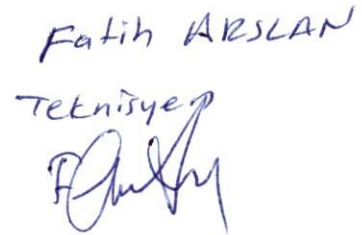 Fatih ARSLAN
Teknisyen